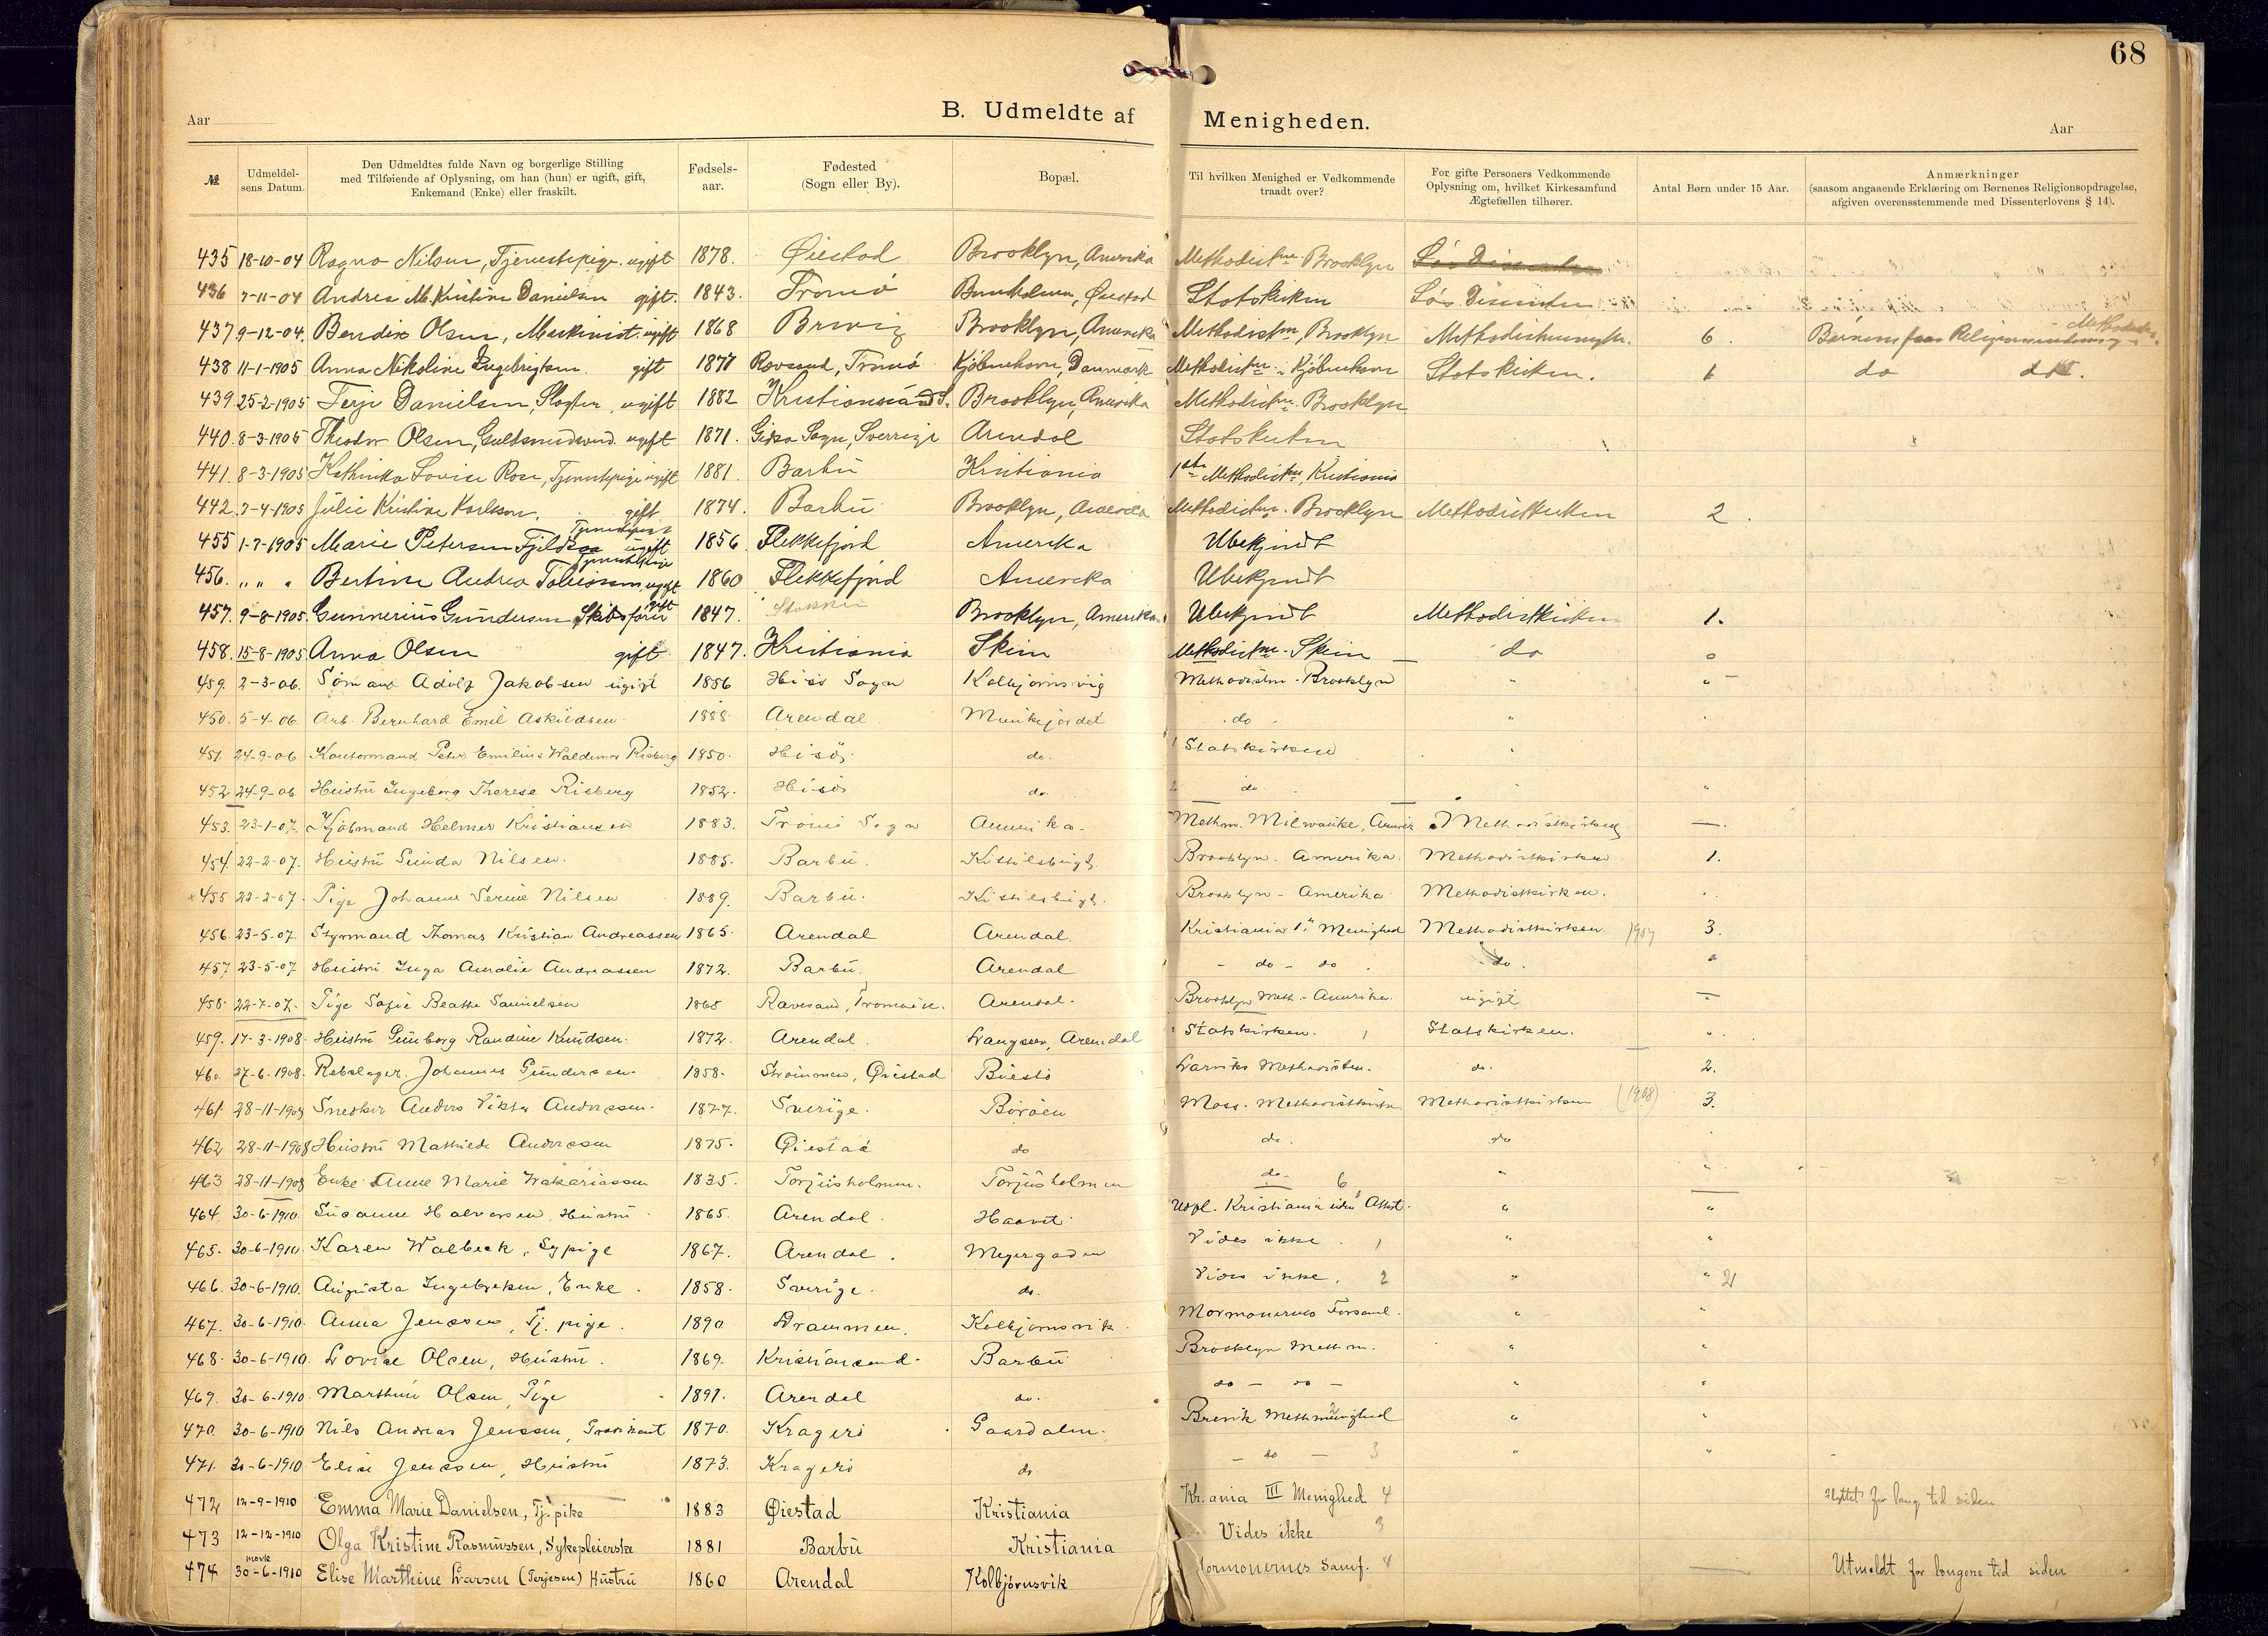 68
B. Udmeldte af Menigheden.
Aar
Aar
№ | Udmeldelsens Datum. | Den Udmeldtes fulde Navn og borgerlige Stilling med Tilføiende af Oplysning, om han (hun) er ugift, gift, Enkemand (Enke) eller fraskilt. | Fødselsaar. | Fødested (Sogn eller By). | Bopæl. | Til hvilken Menighed er Vedkommende traadt over? | For gifte Personers Vedkommende Oplysning om, hvilket Kirkesamfund Ægtefællen tilhører. | Antal Børn under 15 Aar. | Anmærkninger (saasom angaaende Erklæring om Børnenes Religionsopdragelse, afgiven overensstemmende med Dissenterlovens § 14).
435 18-10-04 Ragna Nilsen, Tjenestepige. ugift 1878. Øiestad Brooklyn, Amerika Methodistm. Brooklyn
436 7-11-04 Andrea M. Kristine Danielsen gift. 1843. Tromö Øiestad Statskirken Lös Disenter
437 9-12-04. Bendix Olsen, Maskinist. ugift 1868 Brevig Brooklyn, Amerika Methodistm, Brooklyn 6.
438 11-1-1905 Anna Nikoline Engebrigtsen gift 1877 Ravsand, Tromö Kjöbenhavn, Danmark Methodistm. i Kjöbenhavn Statskirken. 1 do do.
439 25-2-1905 Terje Danielsen, ugift 1882 Kristianssand S. Brooklyn, Amerika Methodistm. Brooklyn
440. 8-3-1905 Theodor Olsen, Guldsmedsvend. ugift 1871. Sogn, Sverrige Arendal Statskirken
441. 8-3-1905 Kathinka Lovise Rose, Tjenestepige ugift 1881. Barbu Kristiania 1ste Methodistm, Kristiania
442. 7-4-1905 Julie Kristine Karlsson, gift 1874. Barbu Brooklyn, Amerika Methodistm. Brooklyn Methodistkirken 2.
455 1-7-1905 Marie Petersen Tjenestepige ugift 1856 Flekkefjord Amerika Ubekjendt
456. " " " Bertine Andrea Tjenestepige ugift 1860 Flekkefjord Amerika Ubekjendt
457. 9-8-1905. Gunnerius Gundersen Skibsfører gift 1847. Stokken Brooklyn, Amerika. Ubekjendt Methodistkirken 1.
458. 15-8-1905 Anna Olsen gift 1847. Kristiania Skien Methodistm. Skien do 0
459. 2-3-06. Sömand Adolf Jakobsen ugift 1886 Hisö Sogn Kolbjörnsvig Methodistm. Brooklyn " "
450. 5-4-06. Arb. Bernhard Emil Askildsen 1888 Arendal Munkejordet do "
451. 24-9-06 Kontormand Peter Emilius Waldemar Risberg 1850. Hisö. do. Statskirken "
452 24-9-06 Hustru Ingeborg Therese Risberg 1852. Hisö do. do "
453. 23-1-07. Kjöbmand Helmer Kristiansen 1883. Tromö Sogn Amerika. Methm. Milwaukee, Amerik Methodistkirken —
454. 22-2-07. Hustru Gunda Nilsen. 1885. Barbu. Kittelsbugt. Brooklyn. Amerika. Methodistkirken 1.
× 455 22-2-07. Pige Johanne Serine Nilsen 1889. Barbu. Kittelsbugt. Brooklyn - Amerika Methodistkirken.
456 23-5-07. Styrmand Thomas Kristian Andreassen 1865. Arendal Arendal. Kristiania 1. Menighed Methodistkirken 1907 3.
457 23-5-07 Hustru Inga Amalie Andreassen 1872. Barbu. Arendal - do - do. do. "
458. 22-7-07. Pige Sofie Beathe Samuelsen 1865 Ravesand, Arendal. Brooklyn Meth. - Amerika. ugift —
459. 17-3-1908. Hustru Gunborg Randine Knudsen. 1872. Arendal. Langsæ, Arendal Statskirken. Statskirken. "
460. 27-6-1908. Rebslager. Johannes Gundersen. 1858. Strömmen, Øiestad Buestö Larviks Methodistm. do. 2.
461. 28-11-1908 Snedker Anders Viktor Andersson. 1877. Sverige. Boröen Moss. Methodistkirke Methodistkirken (1908) 3.
462 28-11-1908 Hustru Mathilde Andersson 1875. Øiestad do do. do "
463 28-11-1908 Enke Anne Marie Zakariassen 1835. Torjusholmen. Torjusholmen do 6 " "
464. 30-6-1910. Susanne Halvorsen, Hustru 1865. Arendal. Haavet Udpl. Kristiania uden Attest. " "
465. 30-6-1910 Karen Walbeck, Sypige 1867. Arendal. Meyergaden Vides ikke. 1 " "
466. 30-6-1910. Augusta Ingebretsen, Enke. 1858. Sverige. do. Vides ikke. 2 " " 21
467. 30-6-1910. Anna Jenssen, Tj. pige. 1890 Drammen. Kolbjørnsvik Mormonernes Forsaml. " "
468. 30-6-1910. Lovise Olsen, Hustru. 1869. Kristiansand. Barbu Brooklyn Meth m. " "
469. 30-6-1910 Marthine Olsen, Pige 1891. Arendal do. do - do - " "
470. 30-6-1910 Nils Andreas Jenssen, 1870. Kragerö Gaasdalen. Brevik Meth menighed 2 " "
471. 30-6-1910 Elise Jenssen, Hustru 1873. Kragerö do. - do - 3 " "
472 12-9-1910 Emma Marie Danielsen, Tj. pike 1883 Øiestad Kristiania Kr.ania III Menighed 4 flyttet for lang tid siden
473 12-12-1910 Olga Kristine Rasmussen, Sykepleierske 1881 Barbu Kristiania Vides ikke 3
474 30-6-1910 Elise Marthine Larsen (Terjesen) Hustru 1860 Arendal Kolbjørnsvik Mormonernes Samf. 4 — Utmeldt for længere tid siden